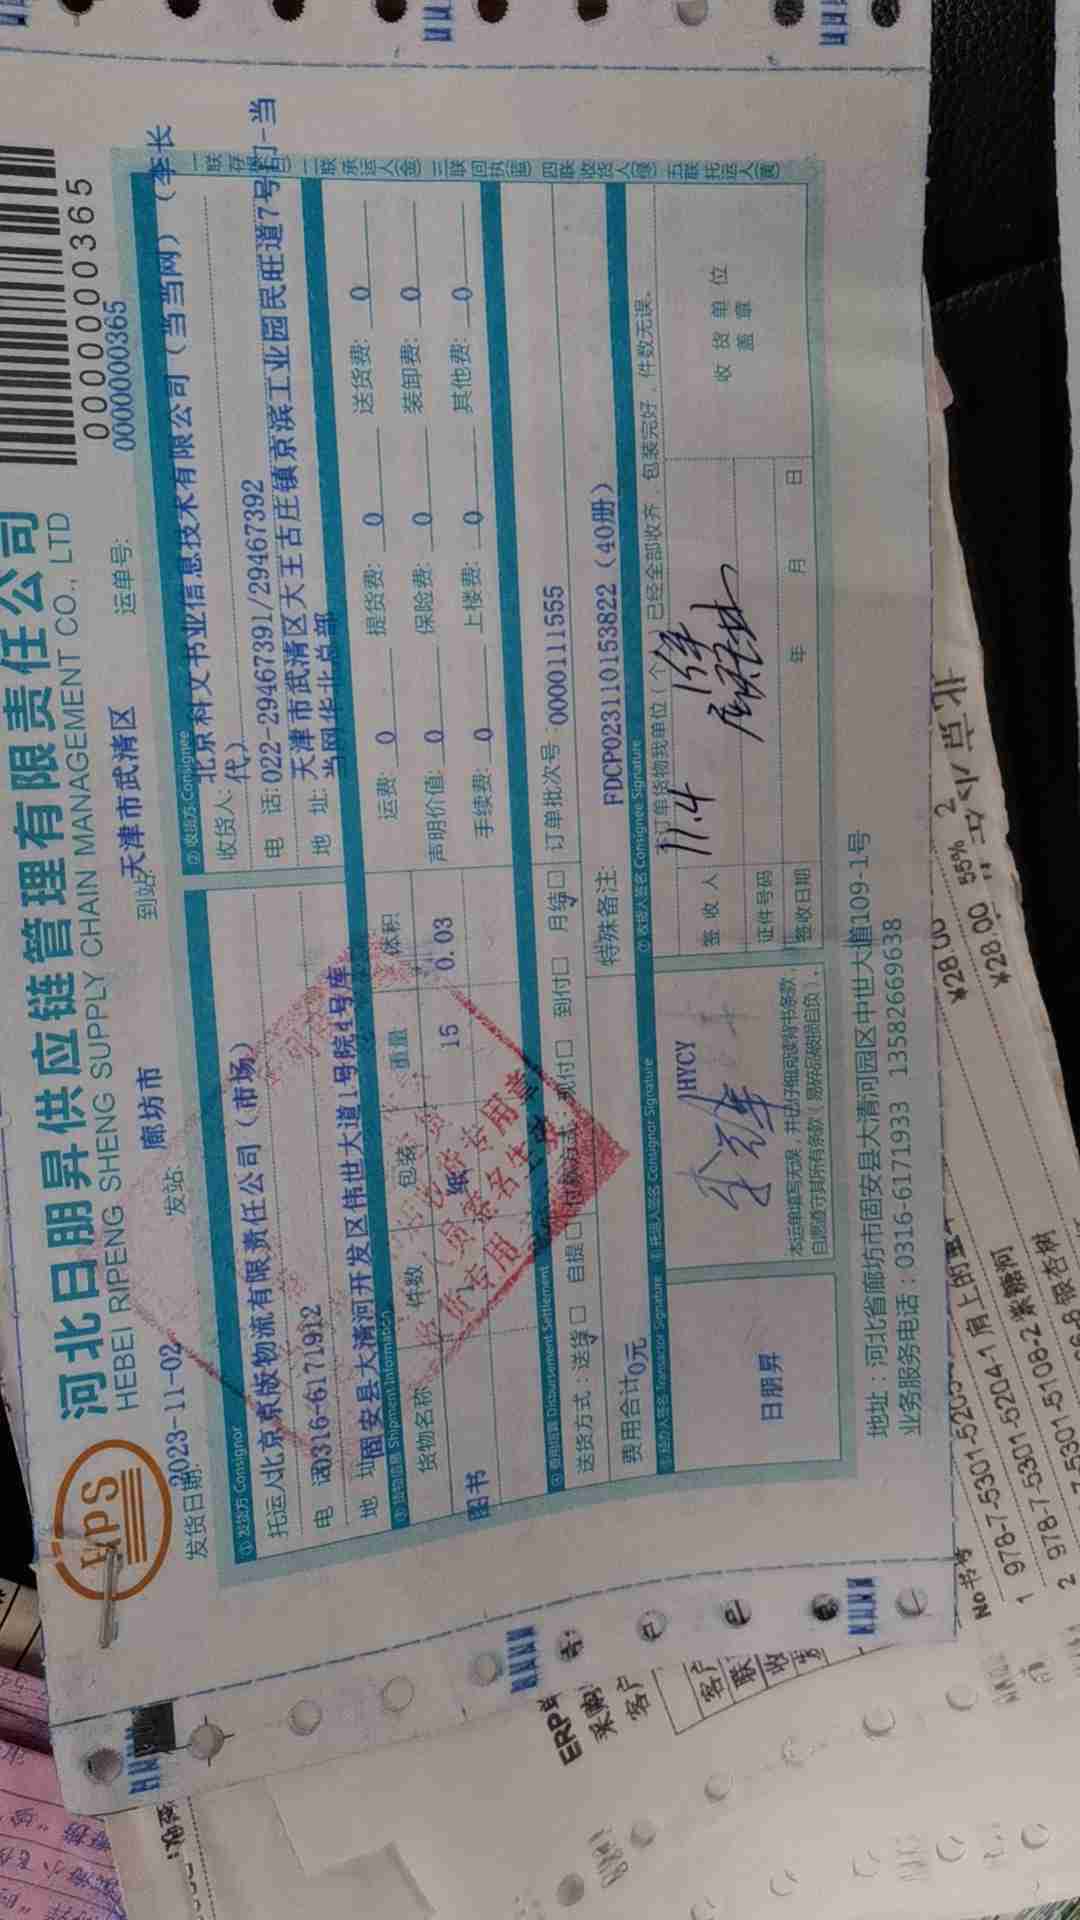 河北日朋昇供应链管理有限责任公司
HEBEI RIPENG SHENG SUPPLY CHAIN MANAGEMENT CO., LTD
0000000365
0000000365
发货日期: 2023-11-02
发站: 廊坊市
到站: 天津市武清区
运单号:
① 发货方 Consignor
托运人 北京京版物流有限责任公司（市场）
电 话 0316-6171912
地 址 固安县大清河开发区伟世大道1号院4号库
② 收货方 Consignee
收货人: 北京科文书业信息技术有限公司（当当网）（李长
代）
电 话: 022-29467391/29467392
地 址: 天津市武清区大王古庄镇京滨工业园民旺道7号的-当
当网华北总部
③ 货物信息 Shipment Information
货物名称 件数 包装 重量 体积
图书 纸 15 0.03
运费: 0 提货费: 0 送货费: 0
声明价值: 0 保险费: 0 装卸费: 0
手续费: 0 上楼费: 0 其他费: 0
④ 费用结算 Disbursement Settlement
送货方式：送货 自提 付款方式：现付 到付 月结
订单批次号：0000111555
费用合计0元
特殊备注: FDCP023110153822（40册）
⑤ 经办人签名 Transactor Signature
⑥ 托运人签名 Consignor Signature
⑦ 收货人签名 Consignee Signature
日朋昇
HYCY
本运单填写无误，并已仔细阅读背书条款，
自愿遵守其所有条款（易碎品破损自负）。
本订单货物我单位（个人）已经全部收齐，包装完好，件数无误。
签 收 人 11.4
证件号码
签收日期 年 月 日
收 货 单 位
盖 章
地址：河北省廊坊市固安县大清河园区中世大道109-1号
业务服务电话：0316-6171933 13582669638
一联存根 二联承运人 三联回执 四联收货人 五联托运人
ERP单号:
采购
客户
客户
联
收
No 书号
1 978-7-5301-5204-1 肩上的
2 978-7-5301-5108-2 紫糖河
银杏树
¥28.00
¥28.00 55% 2